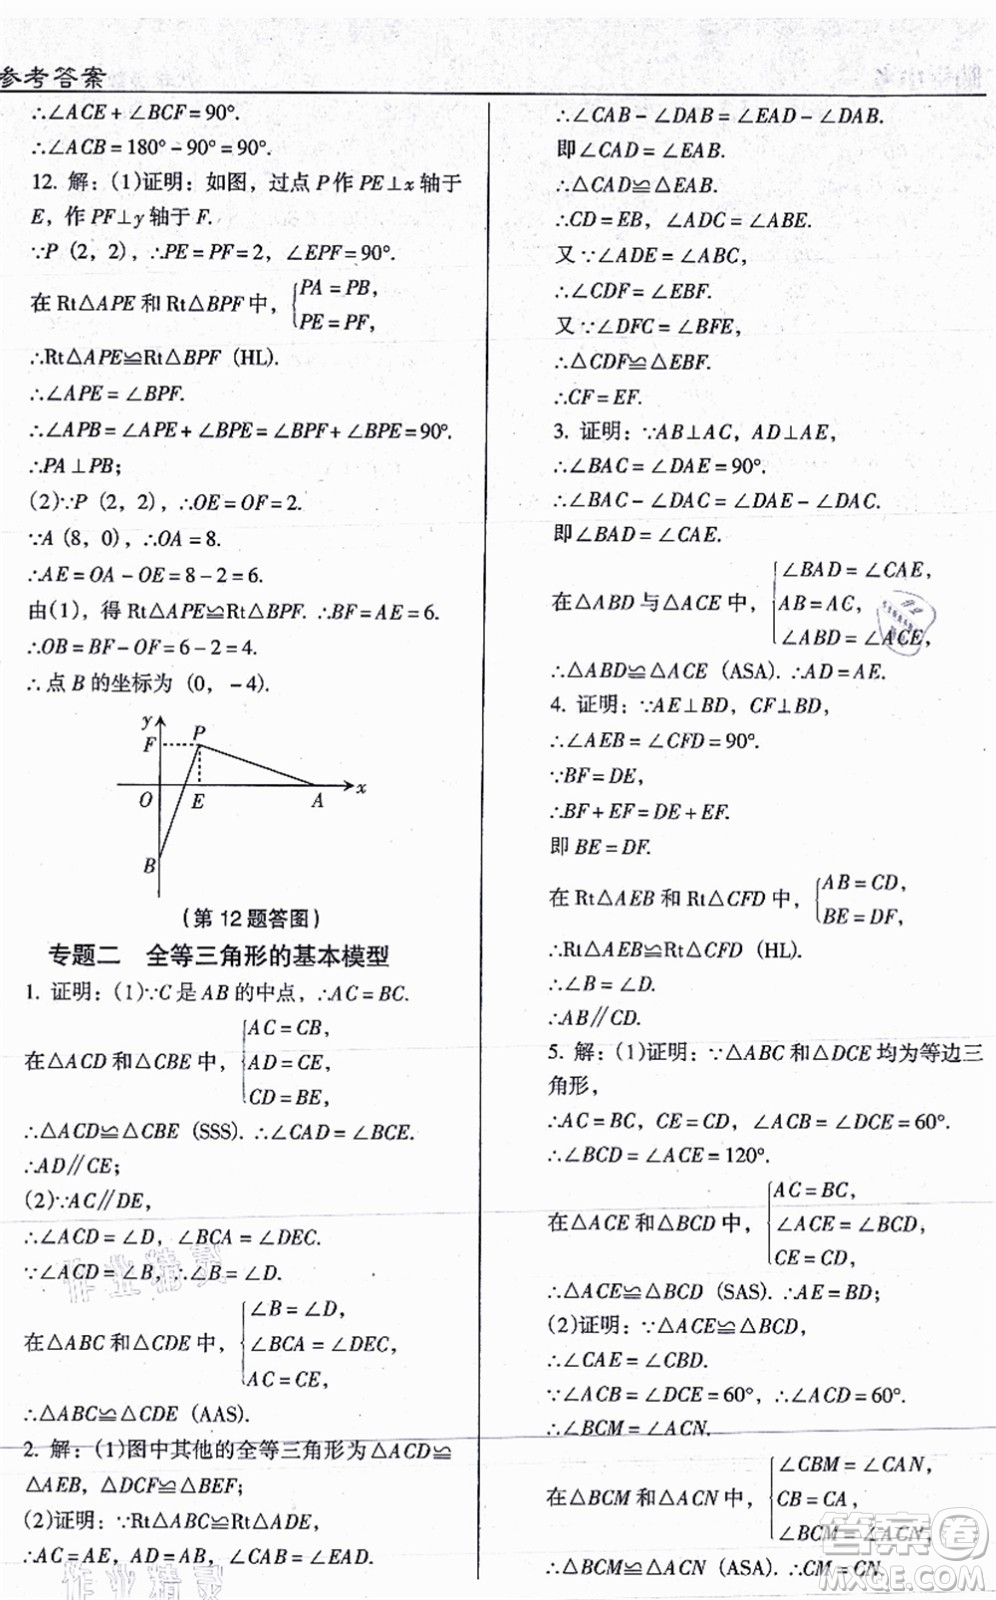 参考答案
∴∠ACE+∠BCF=90°.
∴∠ACB=180°-90°=90°.
12. 解：(1)证明：如图，过点P作PE⊥x轴于
E，作PF⊥y轴于F.
∵P（2，2），∴PE=PF=2，∠EPF=90°.
在Rt△APE和Rt△BPF中，{PA=PB，
PE=PF，
∴Rt△APE≌Rt△BPF（HL）.
∴∠APE=∠BPF.
∴∠APB=∠APE+∠BPE=∠BPF+∠BPE=90°.
∴PA⊥PB；
(2)∵P（2，2），∴OE=OF=2.
∵A（8，0），∴OA=8.
∴AE=OA-OE=8-2=6.
由(1)，得Rt△APE≌Rt△BPF. ∴BF=AE=6.
∴OB=BF-OF=6-2=4.
∴点B的坐标为（0，-4）.
y
F P
O E A x
B
(第12题答图)
专题二 全等三角形的基本模型
1. 证明：(1)∵C是AB的中点，∴AC=BC.
在△ACD和△CBE中，{AC=CB，
AD=CE，
CD=BE，
∴△ACD≌△CBE（SSS）. ∴∠CAD=∠BCE.
∴AD∥CE；
(2)∵AC∥DE，
∴∠ACD=∠D，∠BCA=∠DEC.
∵∠ACD=∠B，∴∠B=∠D.
在△ABC和△CDE中，{∠B=∠D，
∠BCA=∠DEC，
AC=CE，
∴△ABC≌△CDE（AAS）.
2. 解：(1)图中其他的全等三角形为△ACD≌
△AEB，△DCF≌△BEF；
(2)证明：∵Rt△ABC≌Rt△ADE，
∴AC=AE，AD=AB，∠CAB=∠EAD.
∴∠CAB-∠DAB=∠EAD-∠DAB.
即∠CAD=∠EAB.
∴△CAD≌△EAB.
∴CD=EB，∠ADC=∠ABE.
又∵∠ADE=∠ABC，
∴∠CDF=∠EBF.
又∵∠DFC=∠BFE，
∴△CDF≌△EBF.
∴CF=EF.
3. 证明：∵AB⊥AC，AD⊥AE，
∴∠BAC=∠DAE=90°.
∴∠BAC-∠DAC=∠DAE-∠DAC.
即∠BAD=∠CAE.
在△ABD与△ACE中，{∠BAD=∠CAE，
AB=AC，
∠ABD=∠ACE，
∴△ABD≌△ACE（ASA）. ∴AD=AE.
4. 证明：∵AE⊥BD，CF⊥BD，
∴∠AEB=∠CFD=90°.
∵BF=DE，
∴BF+EF=DE+EF.
即BE=DF.
在Rt△AEB和Rt△CFD中，{AB=CD，
BE=DF，
∴Rt△AEB≌Rt△CFD（HL）.
∴∠B=∠D.
∴AB∥CD.
5. 解：(1)证明：∵△ABC和△DCE均为等边三
角形，
∴AC=BC，CE=CD，∠ACB=∠DCE=60°.
∴∠BCD=∠ACE=120°.
在△ACE和△BCD中，{AC=BC，
∠ACE=∠BCD，
CE=CD，
∴△ACE≌△BCD（SAS）. ∴AE=BD；
(2)证明：∵△ACE≌△BCD，
∴∠CAE=∠CBD.
∵∠ACB=∠DCE=60°，∴∠ACD=60°.
∴∠BCM=∠ACN.
在△BCM和△ACN中，{∠CBM=∠CAN，
CB=CA，
∠BCM=∠ACN，
∴△BCM≌△ACN（ASA）. ∴CM=CN.
作业精灵
作业精灵
答案卷
MXQE.COM